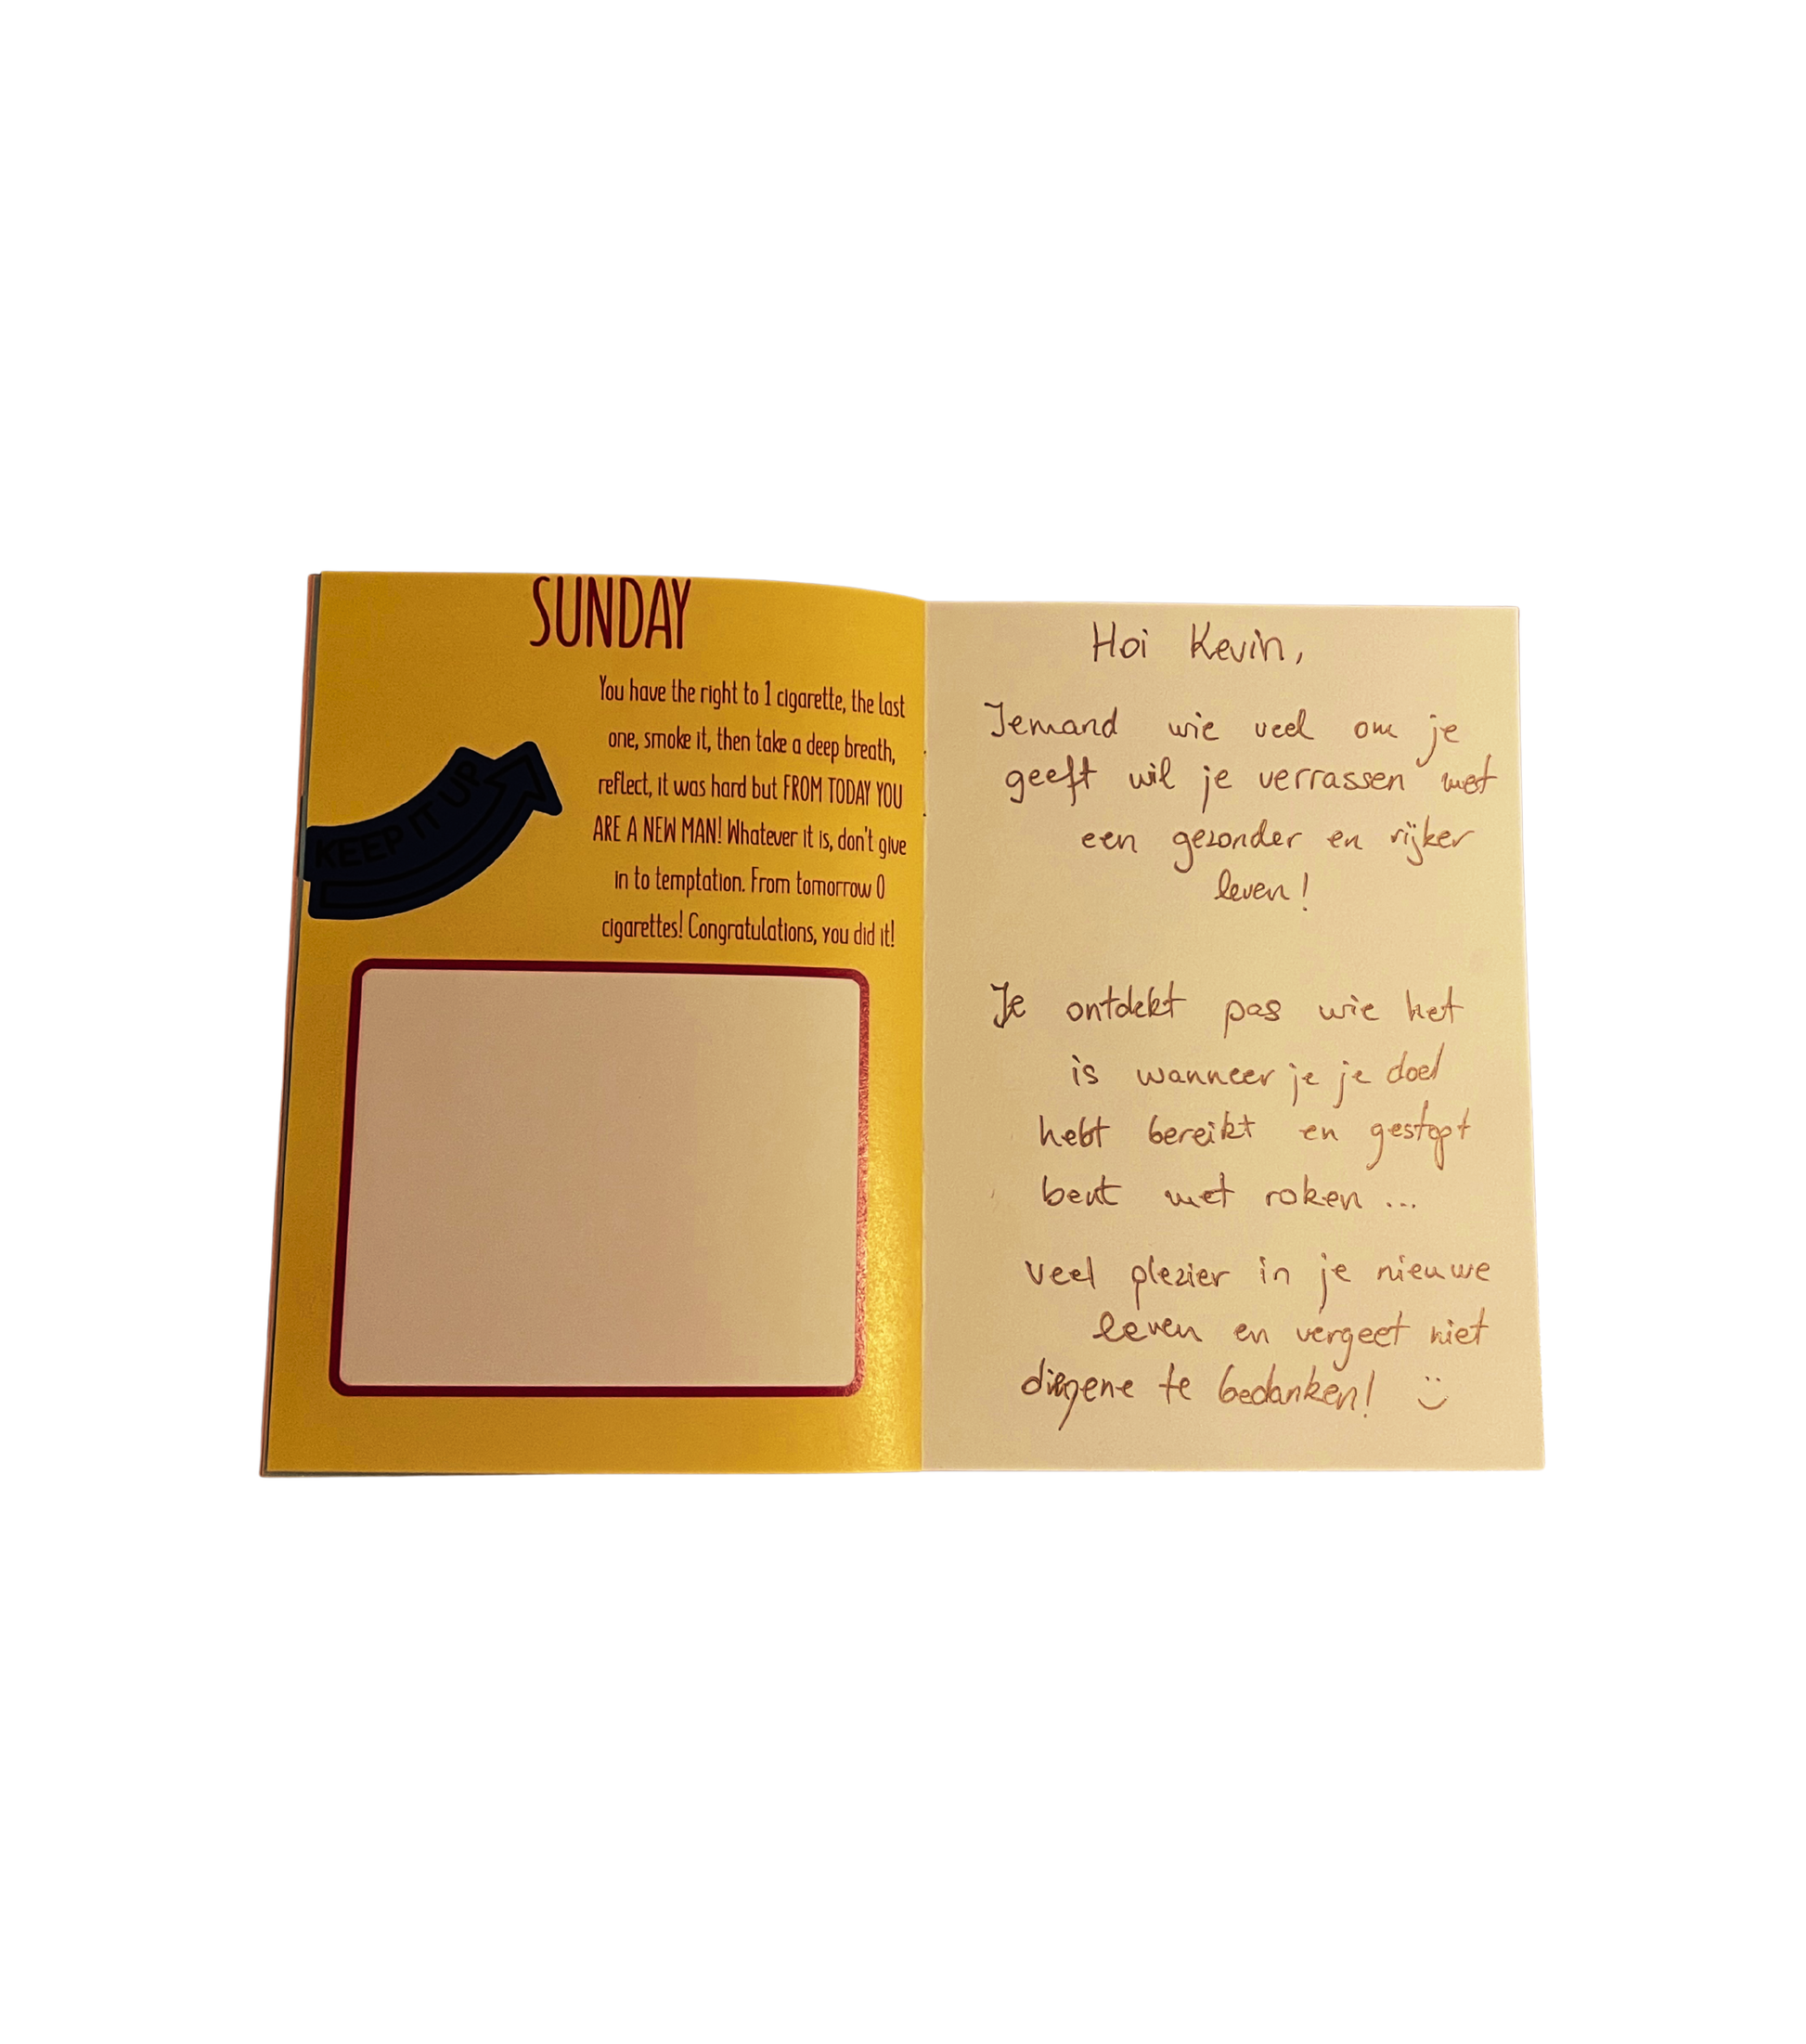 SUNDAY
You have the right to 1 cigarette, the last
one, smoke it, then take a deep breath,
reflect, it was hard but FROM TODAY YOU
ARE A NEW MAN! Whatever it is, don't give
in to temptation. From tomorrow 0
cigarettes! Congratulations, you did it!
KEEP IT UP
Hoi Kevin,
Iemand wie veel om je
geeft wil je verrassen met
een gezonder en rijker
leven!
Je ontdekt pas wie het
is wanneer je je doel
hebt bereikt en gestopt
bent met roken ...
Veel plezier in je nieuwe
leven en vergeet niet
diegene te bedanken! :)